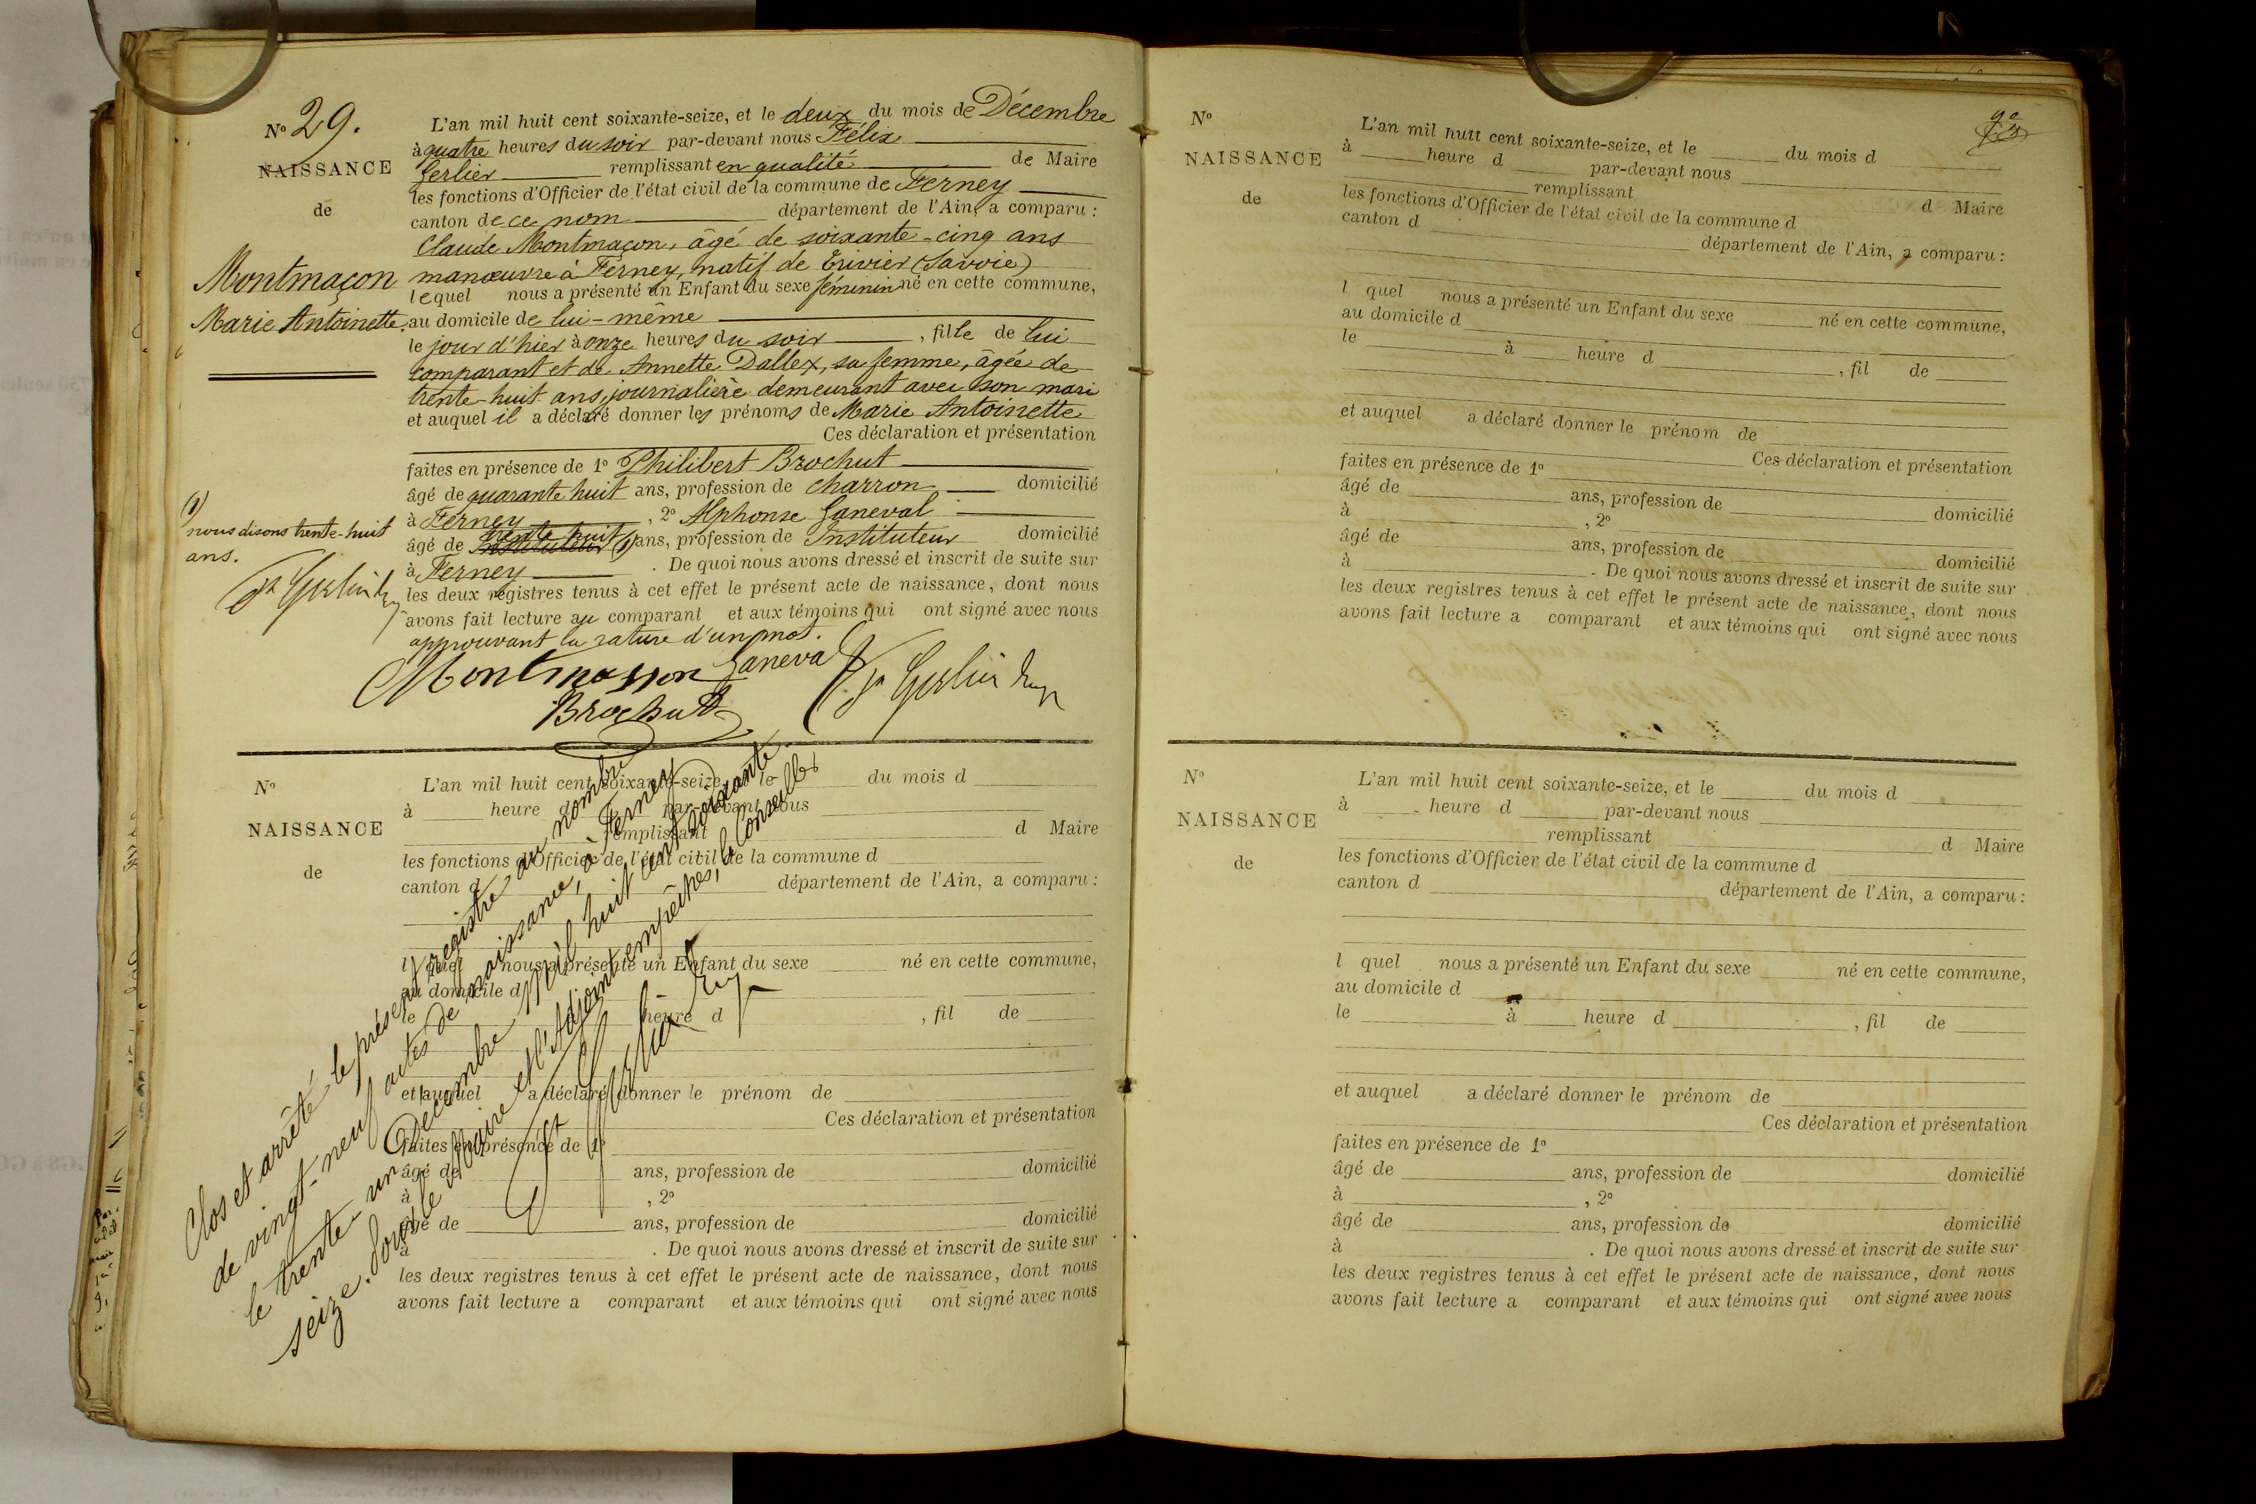 N° 29.
NAISSANCE
de
Montmaçon
Marie Antoinette.
L'an mil huit cent soixante-seize, et le deux du mois de Décembre
à quatre heures du soir par-devant nous Félix
Gerlier remplissant en qualité de Maire
les fonctions d'Officier de l'état civil de la commune de Ferney
canton de ce nom département de l'Ain, a comparu :
Claude Montmaçon, âgé de soixante-cinq ans
manœuvre à Ferney, natif de (Savoie)
lequel nous a présenté un Enfant du sexe féminin né en cette commune,
au domicile de lui-même
le jour d'hier à onze heures du soir , fille de lui
comparant et de Annette Dallex, sa femme, âgée de
trente-huit ans, journalière demeurant avec son mari
et auquel il a déclaré donner les prénoms de Marie Antoinette
Ces déclaration et présentation
faites en présence de 1° Philibert Brochut
âgé de quarante huit ans, profession de charron domicilié
à Ferney , 2° Alphonse Ganeval
âgé de trente huit Instituteur (1) ans, profession de Instituteur domicilié
à Ferney . De quoi nous avons dressé et inscrit de suite sur
les deux registres tenus à cet effet le présent acte de naissance, dont nous
avons fait lecture au comparant et aux témoins qui ont signé avec nous
approuvant la rature d'un mot.
(1)
nous disons trente-huit
ans.
Montmasson Ganeval
Brochut
N°
NAISSANCE
de
L'an mil huit cent soixante-seize, et le du mois d
à heure d par-devant nous
remplissant d Maire
les fonctions d'Officier de l'état civil de la commune d
canton d département de l'Ain, a comparu :
l quel nous a présenté un Enfant du sexe né en cette commune,
au domicile d
le à heure d , fil de
et auquel a déclaré donner le prénom de
Ces déclaration et présentation
faites en présence de 1°
âgé de ans, profession de domicilié
à , 2°
âgé de ans, profession de domicilié
à . De quoi nous avons dressé et inscrit de suite sur
les deux registres tenus à cet effet le présent acte de naissance, dont nous
avons fait lecture a comparant et aux témoins qui ont signé avec nous
Clos et arrêté le présent registre au nombre
de vingt-neuf actes de naissance, à Ferney
le trente-un Décembre mil huit cent soixante
seize. Pour le Maire et l'Adjoint empêchés, le Conseiller
N°
NAISSANCE
de
L'an mil huit cent soixante-seize, et le du mois d
à heure d par-devant nous
remplissant d Maire
les fonctions d'Officier de l'état civil de la commune d
canton d département de l'Ain, a comparu :
l quel nous a présenté un Enfant du sexe né en cette commune,
au domicile d
le à heure d , fil de
et auquel a déclaré donner le prénom de
Ces déclaration et présentation
faites en présence de 1°
âgé de ans, profession de domicilié
à , 2°
âgé de ans, profession de domicilié
à . De quoi nous avons dressé et inscrit de suite sur
les deux registres tenus à cet effet le présent acte de naissance, dont nous
avons fait lecture a comparant et aux témoins qui ont signé avec nous
N°
NAISSANCE
de
L'an mil huit cent soixante-seize, et le du mois d
à heure d par-devant nous
remplissant d Maire
les fonctions d'Officier de l'état civil de la commune d
canton d département de l'Ain, a comparu :
l quel nous a présenté un Enfant du sexe né en cette commune,
au domicile d
le à heure d , fil de
et auquel a déclaré donner le prénom de
Ces déclaration et présentation
faites en présence de 1°
âgé de ans, profession de domicilié
à , 2°
âgé de ans, profession de domicilié
à . De quoi nous avons dressé et inscrit de suite sur
les deux registres tenus à cet effet le présent acte de naissance, dont nous
avons fait lecture a comparant et aux témoins qui ont signé avec nous